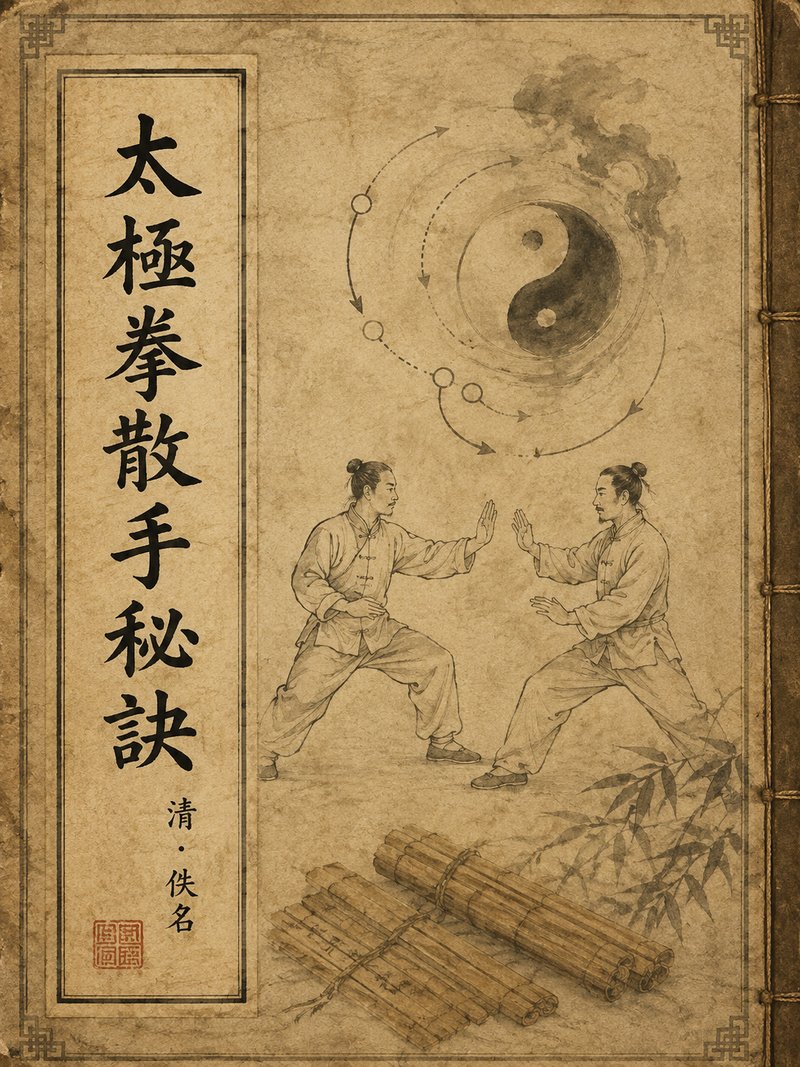 太極拳散手秘訣
清·佚名